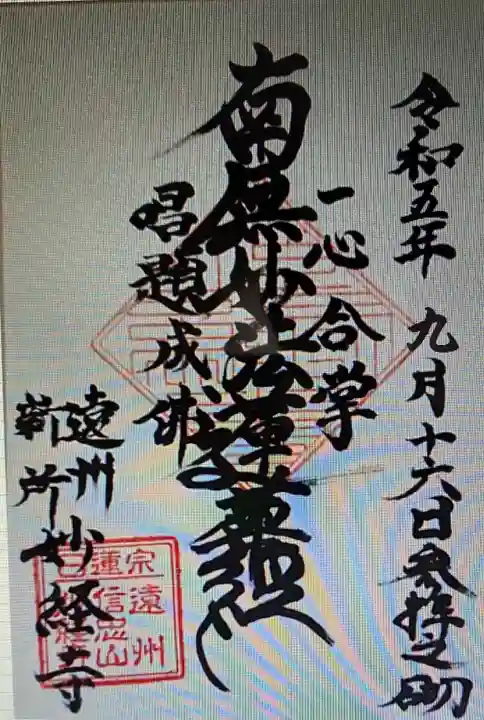 令和五年 九月十六日参拝之砌
一心合掌
南無妙法蓮華経
唱題成佛
遠州
新所
妙経寺
日蓮宗
遠州